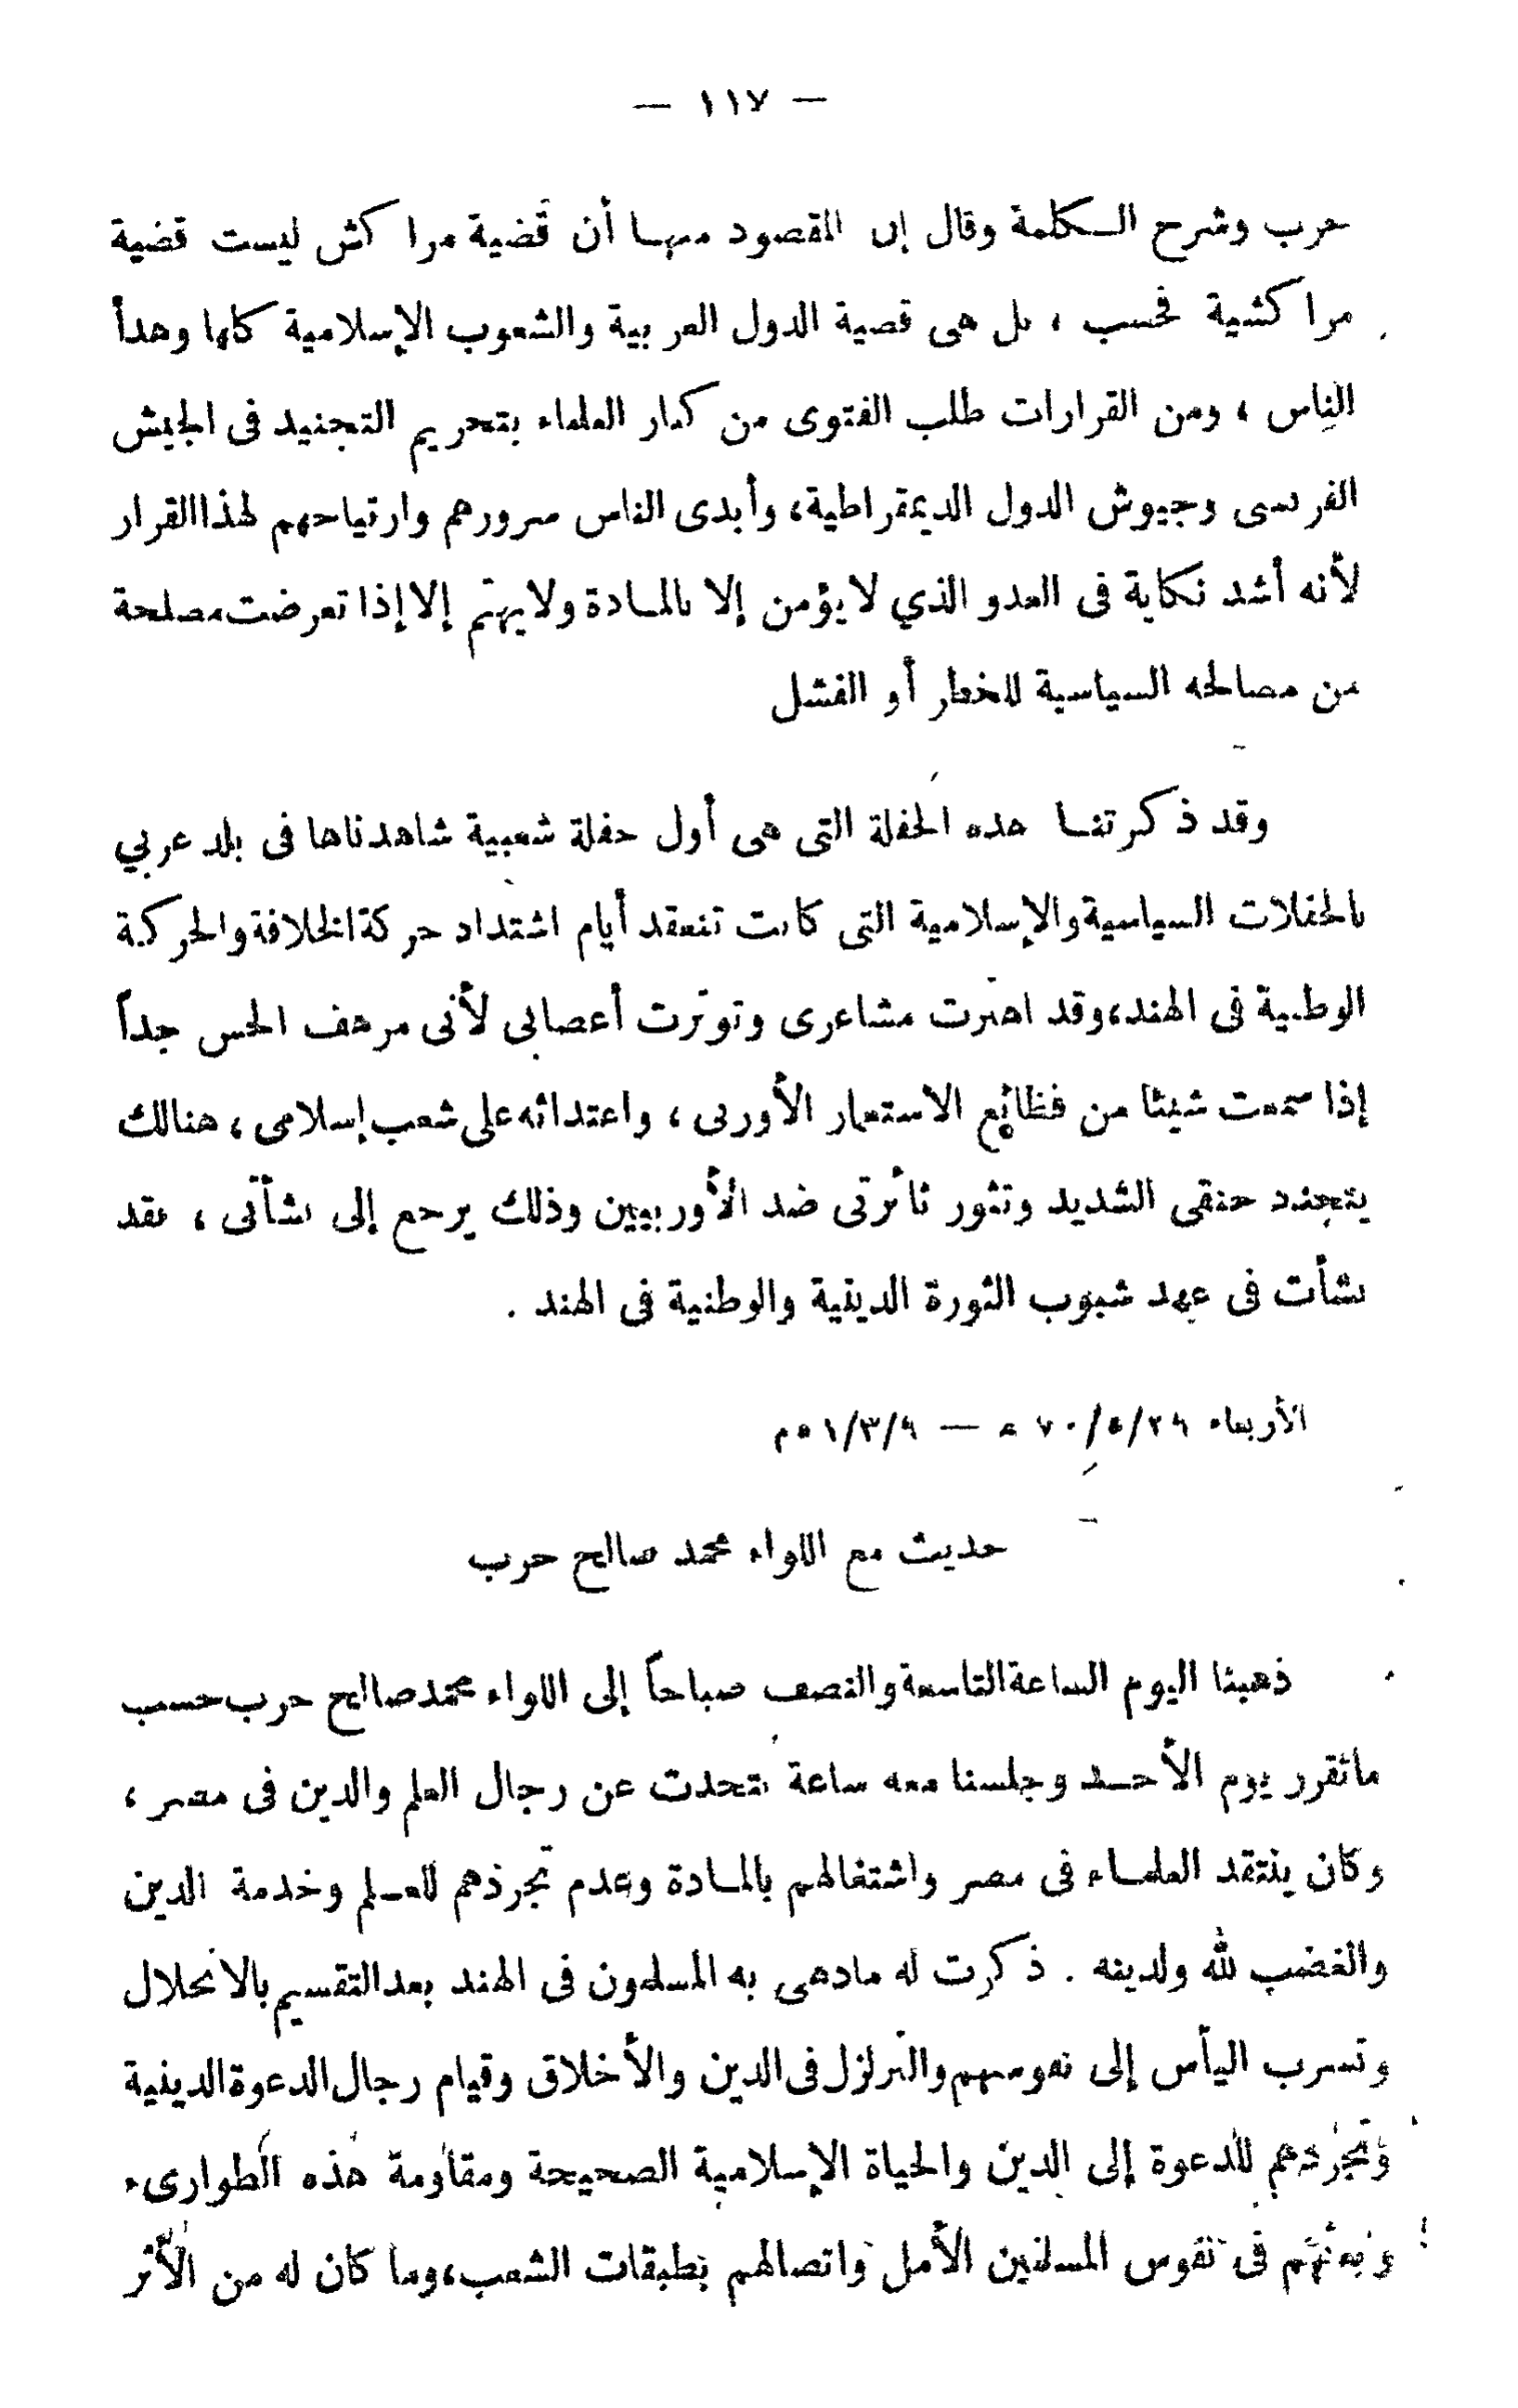 — ١١٧ —
حرب وشرح الكلمة وقال إن المقصود منها أن قضية مراكش ليست قضية
مراكشية فحسب ، بل هى قضية الدول العربية والشعوب الإسلامية كلها وهدأ
الناس ، ومن القرارات طلب الفتوى من كبار العلماء بتحريم التجنيد فى الجيش
الفرنسى وجيوش الدول الديمقراطية، وأبدى الناس سرورهم وارتياحهم لهذا القرار
لأنه أشد نكاية فى العدو الذي لا يؤمن إلا بالمادة ولا يهتم إلا إذا تعرضت مصلحة
من مصالحه السياسية للخطر أو الفشل
وقد ذكرتنا هذه الحفلة التى هى أول حفلة شعبية شاهدناها فى بلد عربي
بالحفلات السياسية والإسلامية التى كانت تنعقد أيام اشتداد حركة الخلافة والحركة
الوطنية فى الهند، وقد اهتزت مشاعرى وتوترت أعصابى لأنى مرهف الحس جداً
إذا سمعت شيئا من فظائع الاستعمار الأوربى ، واعتدائه على شعب إسلامى ، هنالك
يتجدد حنقى الشديد وتثور ثائرتى ضد الأوربيين وذلك يرجع إلى نشأتى ، فقد
نشأت فى عهد شبوب الثورة الدينية والوطنية فى الهند .
الأربعاء ٢٩/٥/٧٠ ه — ٩/٣/٥١ م
حديث مع اللواء محمد صالح حرب
ذهبنا اليوم الساعة التاسعة والنصف صباحاً إلى اللواء محمد صالح حرب حسب
ما تقرر يوم الأحد وجلسنا معه ساعة نتحدث عن رجال العلم والدين فى مصر ،
وكان ينتقد العلماء فى مصر واشتغالهم بالمادة وعدم تجردهم للعلم وخدمة الدين
والغضب لله ولدينه . ذكرت له مادهى به المسلمون فى الهند بعد التقسيم بالانحلال
وتسرب اليأس إلى نفوسهم والتزلزل فى الدين والأخلاق وقيام رجال الدعوة الدينية
وتجردهم للدعوة إلى الدين والحياة الإسلامية الصحيحة ومقاومة هذه الطوارىء
وبعثهم فى نفوس المسلمين الأمل واتصالهم بطبقات الشعب، وما كان له من الأثر